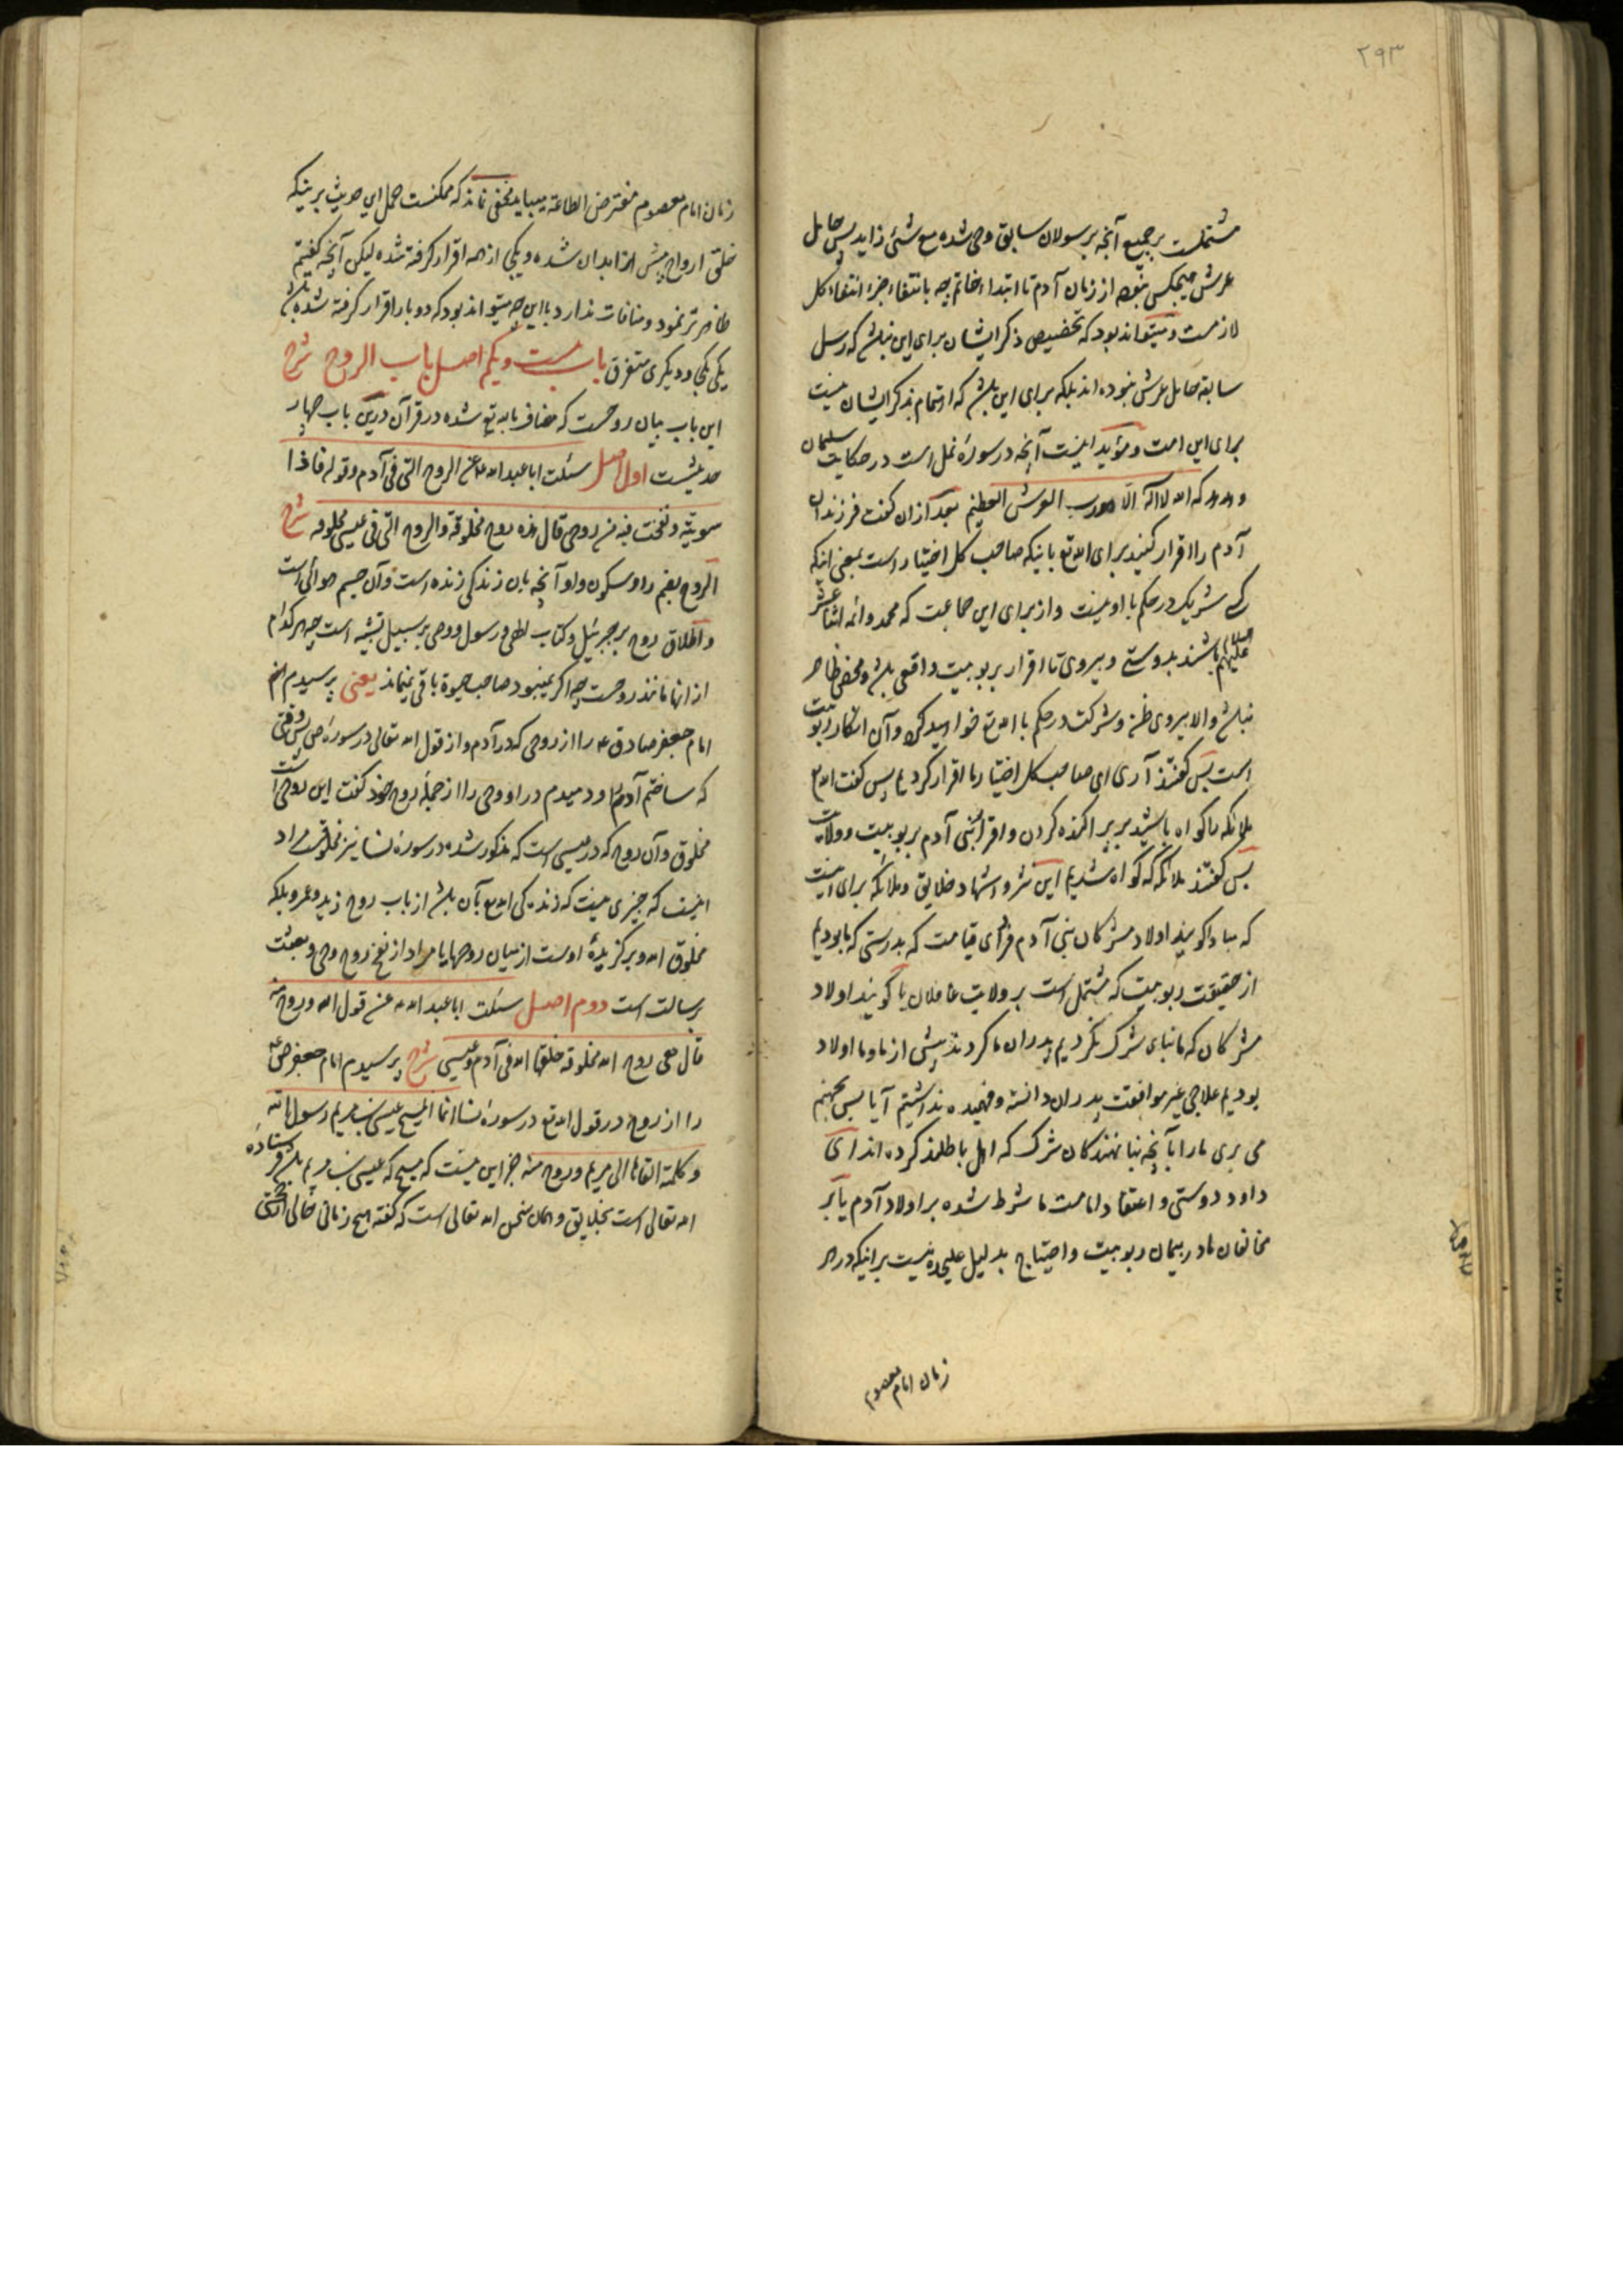 ۲۹۳
مشتملست بر جمیع آنچه بر رسولان سابق وحی شده مع شئی زاید پس حامل
عرش هیچکس نبوده از زمان آدم تا ابتداء خاتم چه بانتفاء جزء انتفاء کل
لازمست و میتواند بود که تخصیص ذکر ایشان برای این نباشد که رسل
سابقه حامل عرش نبوده اند بلکه برای این باشد که اهتمام بذکر ایشان نیست
برای این امت و مؤید اینست آنچه در سورهٔ نمل است در حکایت سلیمان
و هدهد که الله لا اله الا هو رب العرش العظیم بعد ازان گفت فرزندان
آدم را اقرار کنید برای الله تع باینکه صاحب کل اختیار است بمعنی اینکه
کسی شریک در حکم با او نیست و از برای این جماعت که محمد و ائمه اثنا عشر
علیهم السلام باشند بدوستی و پیروی تا اقرار بربوبیت واقعی باشد و محض ظاهر
نباشد و الا پیروی ظن و شرکت در حکم با الله تع خواهید کرد و آن انکار ربوبیت
است پس گفتند آری ای صاحب کل اختیار ما اقرار کردیم پس گفت الله تع
ملائکه را گواه باشید بر پراکنده کردن و اقرار بنی آدم بربوبیت و ولایت
پس گفتند ملائکه که گواه شدیم این نثر و اشهاد خلایق و ملائکه برای اینست
که مبادا گویند اولاد مشرکان بنی آدم فردای قیامت که بدرستی که ما بودیم
از حقیقت ربوبیت که مشتمل است بر ولایت غافلان یا گویند اولاد
مشرکان که ما بنای شرک نکردیم پدران ما کردند پیش از ما و ما اولاد
بودیم علاجی غیر موافقت پدران دانسته و فهمیده نداشتیم آیا پس بجهنم
می بری ما را بآنچه بنا نهندگان شرک که اهل باطلند کرده اند ای
داود دوستی و اعتقاد امامت ما شرط شده بر اولاد آدم یا بر
مخالفان ما در پیمان ربوبیت و احتیاج بدلیل علیحده نیست بر اینکه در هر
زمان امام معصوم
زمان امام معصوم مفترض الطاعة میباید مخفی نماند که ممکنست حمل این حدیث بر اینکه
خلق ارواح پیش از ابدان شده و یکجا از همه اقرار گرفته شده لیکن آنچه گفتیم
ظاهرتر نمود و منافات ندارد با این چه میتواند بود که دو بار اقرار گرفته شده باشد
یکی یکجا و دیگری متفرق باب بیست و یکم اصل باب الروح شرح
این باب بیان روحست که مضاف بالله تع شده در قرآن درین باب چهار
حدیثست اول اصل سئلت ابا عبد الله ع عن الروح التی فی آدم و قوله فاذا
سویته و نفخت فیه من روحی قال هذه روح مخلوقة و الروح التی فی عیسی مخلوقه شرح
الروح بضم را و سکون واو آنچه بآن زندگی زنده است و آن جسم هوائی است
و اطلاق روح بر جبرئیل و کتاب الهی و رسول و وحی بر سبیل تشبیه است چه هر کدام
از آنها مانند روحست چه اگر نمیبود صاحب حیوة باقی نمیماند یعنی پرسیدم از
امام جعفر صادق ع را از روحی که در آدم و از قول الله تعالی در سورهٔ ص پس وقتی
که ساختم آدم را و دمیدم در او وحی را از جمله روح خود گفت این روحی است
مخلوق و آن روح که در عیسی است که مذکور شده در سورهٔ نسا نیز مخلوقست مراد
اینست که چیزی نیست که زندگی الله تع بآن باشد از باب روح زید و عمرو بلکه
مخلوق الله و برگزیدهٔ اوست از میان روحها یا مراد از نفخ روح وحی و بعثت
برسالت است دوم اصل سئلت ابا عبد الله ع عن قول الله و روح منه
قال هی روح الله مخلوقة خلقها الله فی آدم و عیسی شرح پرسیدم امام جعفر ص ع
را از روح در قول الله تع در سورهٔ نسا انما المسیح عیسی بن مریم رسول الله
و کلمته القاها الی مریم و روح منه جز این نیست که مسیح که عیسی بن مریم باشد فرستادهٔ
الله تعالی است بخلایق و همان سخن الله تعالی است که گفته هیچ زمانی خالی از حجتی